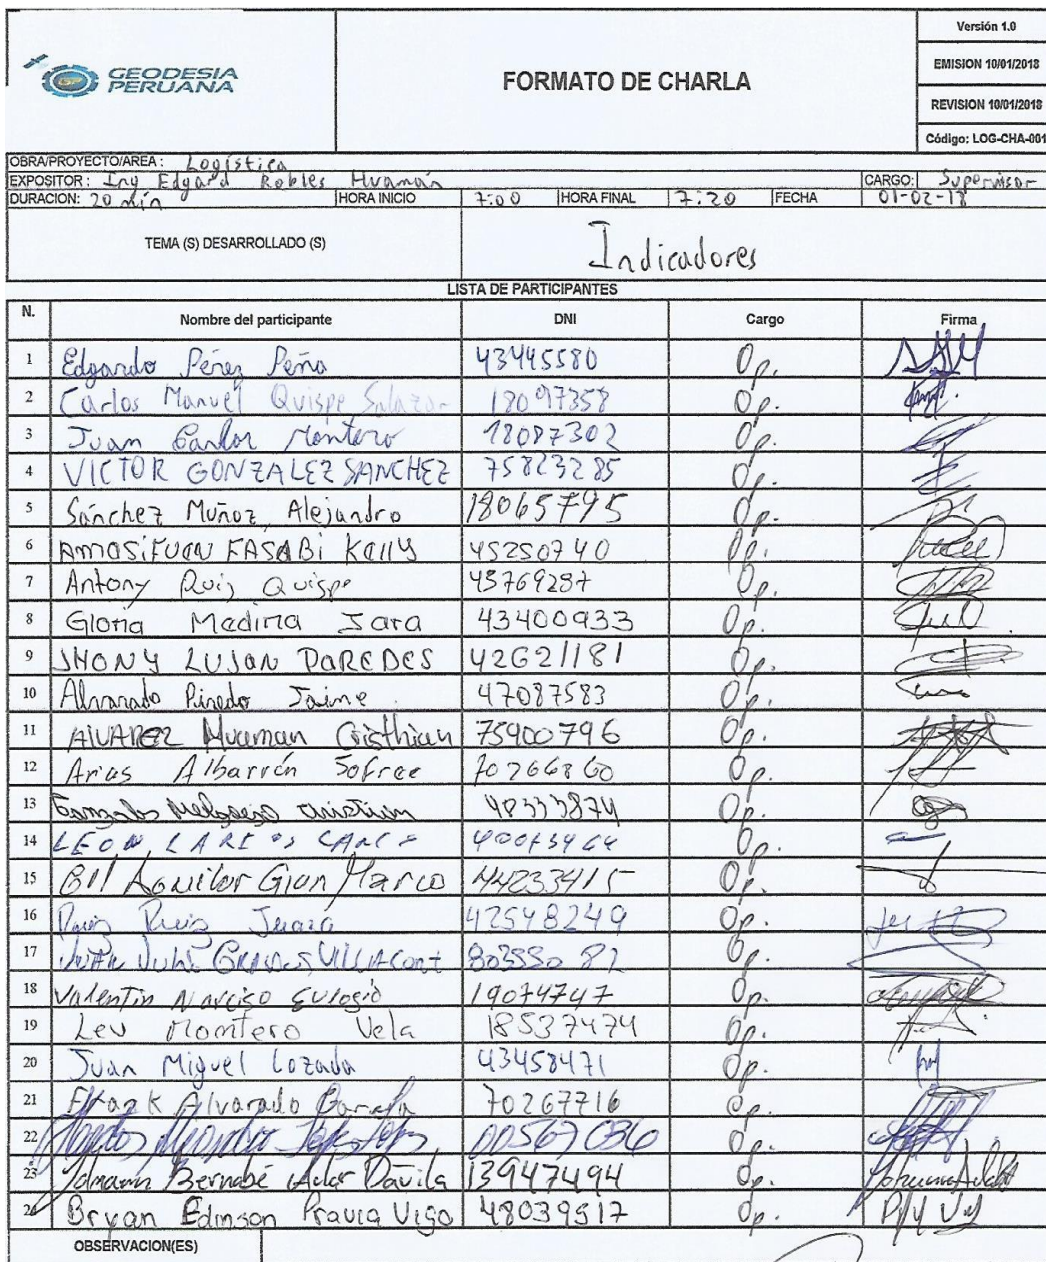 GEODESIA PERUANA
FORMATO DE CHARLA
Versión 1.0
EMISION 10/01/2018
REVISION 10/01/2018
Código: LOG-CHA-001
OBRA/PROYECTO/AREA: Logística
EXPOSITOR: Ing Edgard Robles Huamán CARGO: Supervisor
DURACION: 20 min HORA INICIO 7:00 HORA FINAL 7:20 FECHA 01-02-18
TEMA (S) DESARROLLADO (S) Indicadores
LISTA DE PARTICIPANTES
N. Nombre del participante DNI Cargo Firma
1 Edgardo Pérez Peña 43445580 Op.
2 Carlos Manuel Quispe Salazar 18097358 Op.
3 Juan Carlos Montero 18087302 Op.
4 VICTOR GONZALEZ SANCHEZ 75823285 Op.
5 Sánchez Muñoz, Alejandro 18065795 Op.
6 AMASIFUEN FASABI Kelly 45250740 Op.
7 Antony Ruiz Quispe 43769287 Op.
8 Gloria Medina Jara 43400933 Op.
9 JHONY LUJAN PAREDES 42621181 Op.
10 Alvarado Pinedo Jaime 47087583 Op.
11 ALVAREZ Huaman Cristhian 75900796 Op.
12 Arias Albarrán Jofree 70266860 Op.
13 Gonzales cristian 48333874 Op.
14 LEON Op.
15 Gil Aguilar Gian Marco 44233415 Op.
16 Ruiz Ruiz 42548249 Op.
17 Op.
18 Valentin Narciso Eulogio 19074747 Op.
19 Lev Montero Vela 18537474 Op.
20 Juan Miguel Lozada 43458471 Op.
21 Frank Alvarado 70267716 Op.
22 00567036 Op.
23 Bernabé Dávila 13947494 Op.
24 Bryan Edinson Pravia Vigo 48039517 Op.
OBSERVACION(ES)